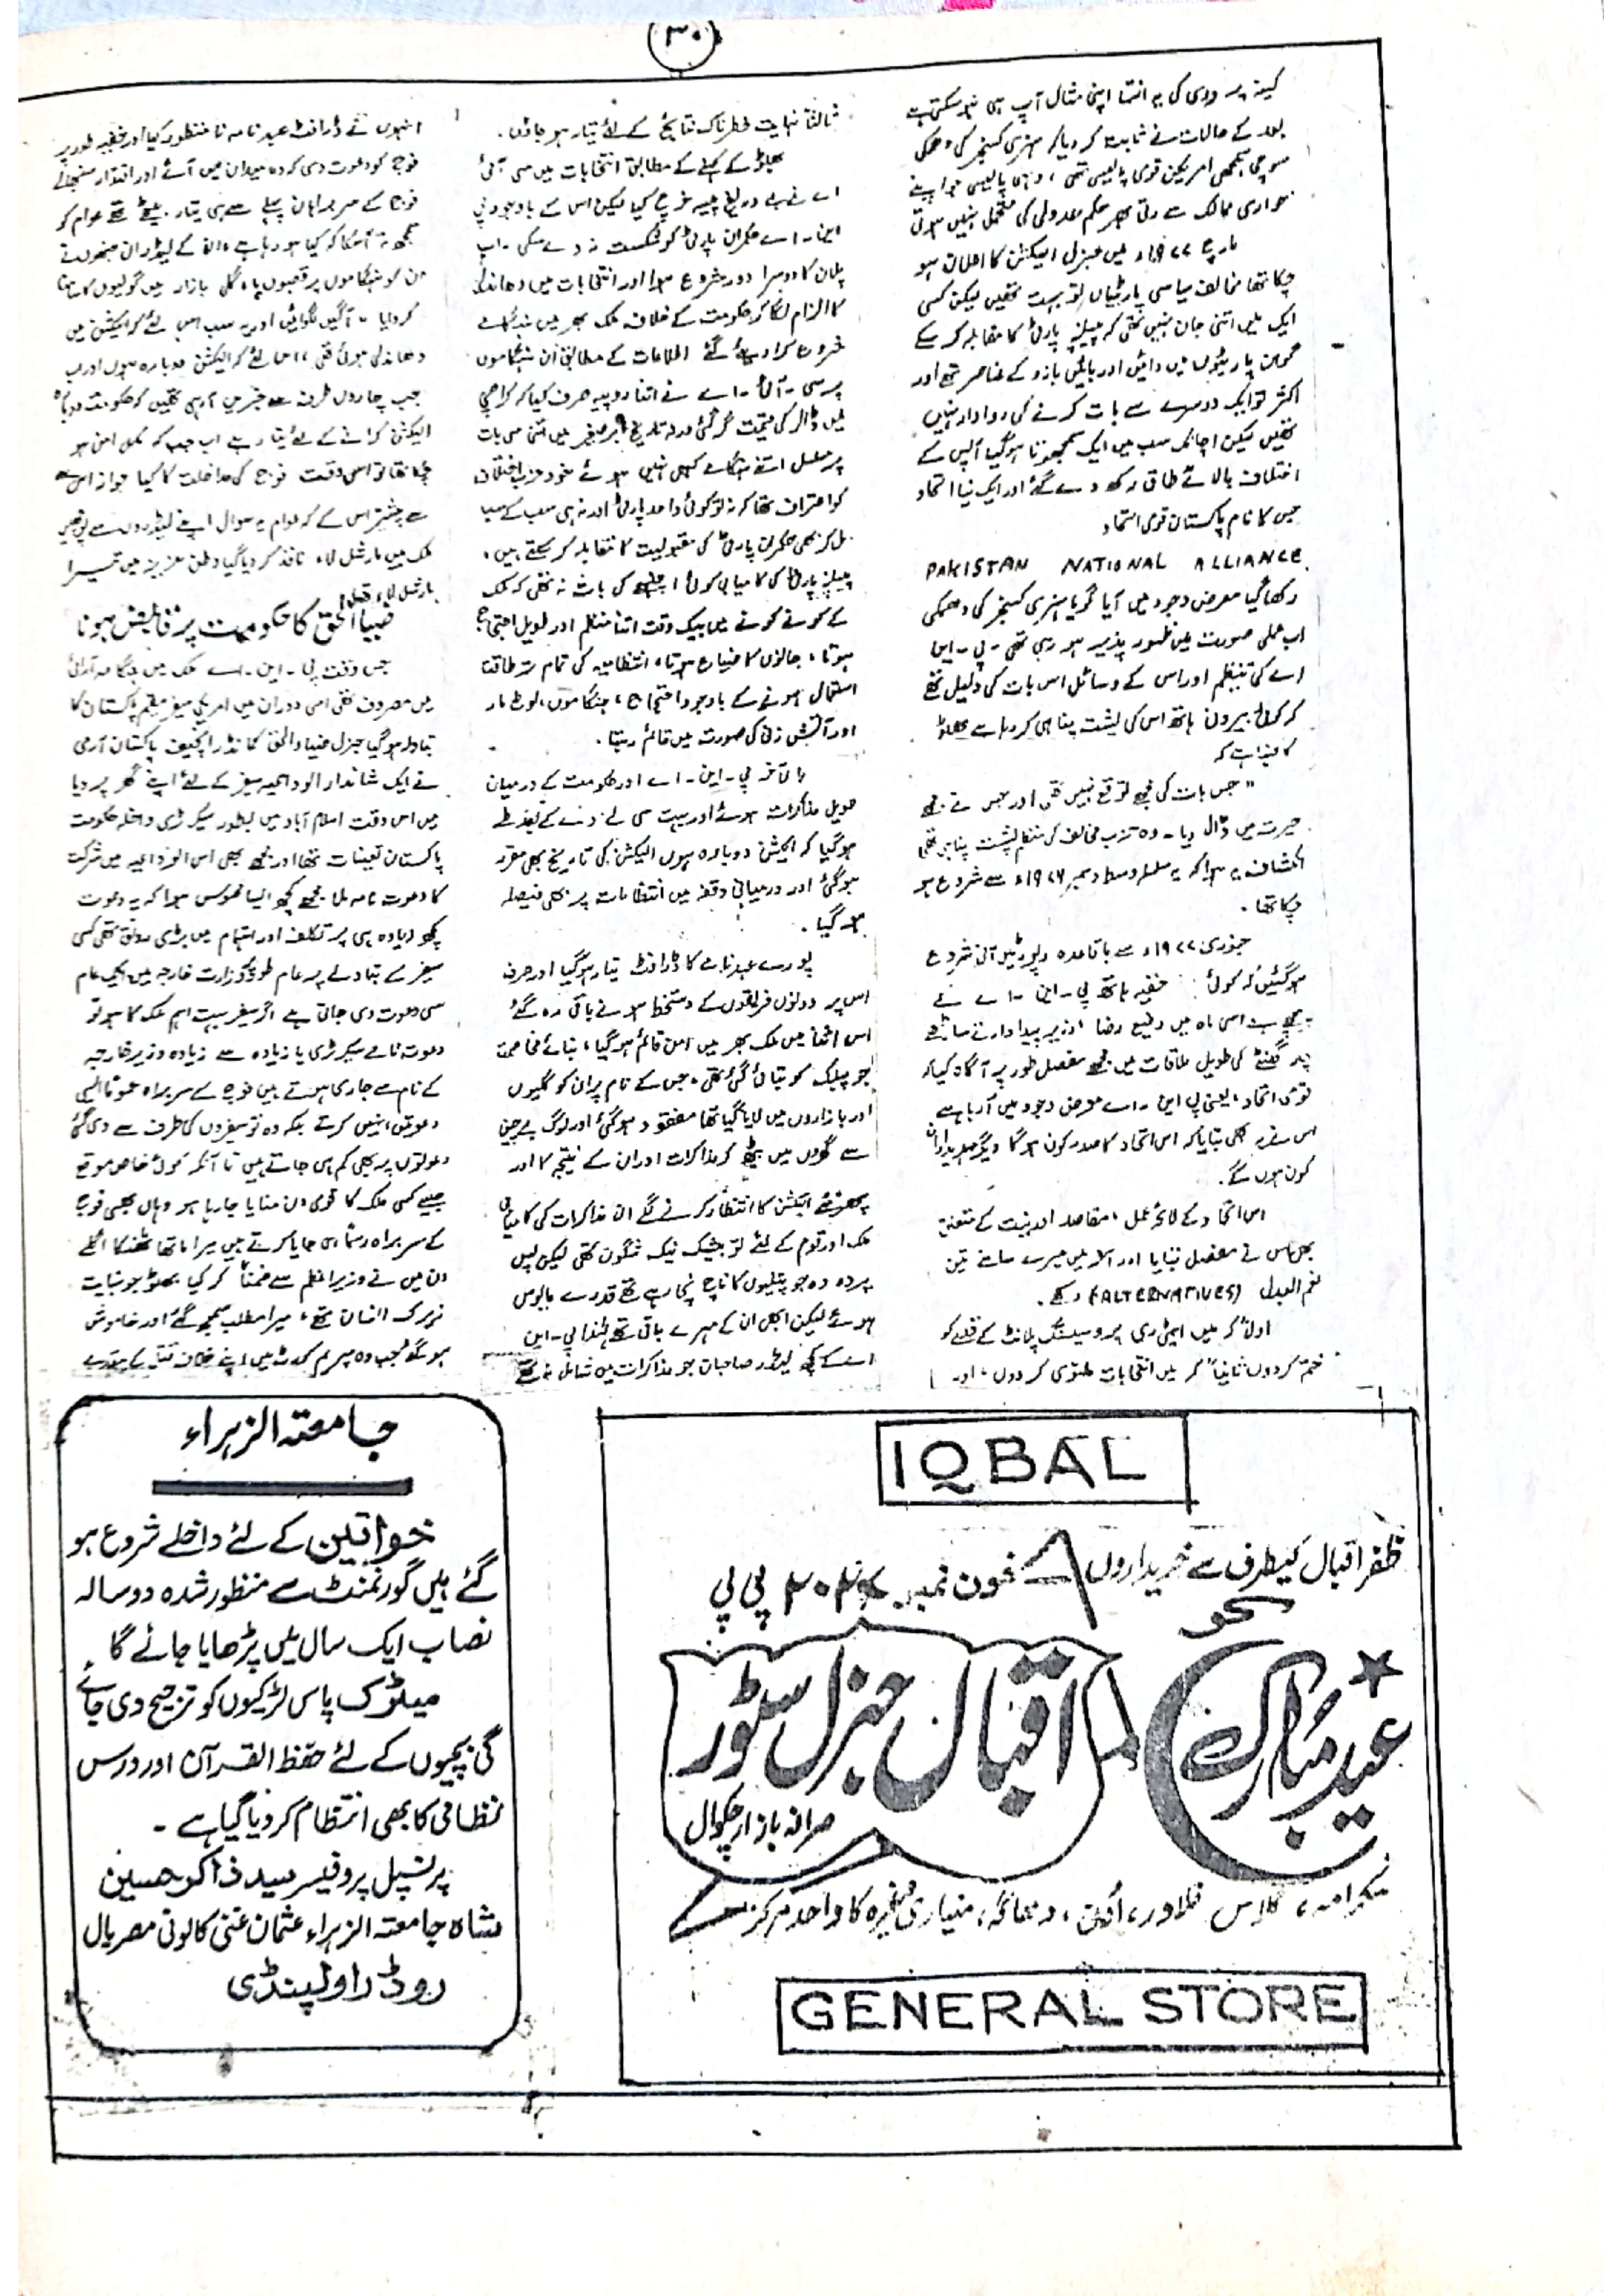 ۳۰
کینہ پروری کی یہ انتہا اپنی مثال آپ ہی ہو سکتی ہے
بعد کے حالات نے ثابت کر دیا کہ ہنری کسنجر کی دھمکی
سوچی سمجھی امریکن قومی پالیسی تھی، وہی پالیسی جو اپنے
حواری ممالک سے رتی بھر حکم عدولی کی متحمل نہیں ہوتی
مارچ ۱۹۷۷ء میں جنرل الیکشن کا اعلان ہو
چکا تھا مخالف سیاسی پارٹیاں تو بہت تھیں لیکن کسی
ایک میں اتنی جان نہیں تھی کہ پیپلز پارٹی کا مقابلہ کر سکے
پارٹیوں میں دائیں اور بائیں بازو کے عناصر تھے اور
اکثر تو ایک دوسرے سے بات کرنے کی روادار نہیں
تھیں لیکن اچانک سب میں ایک سمجھوتا ہو گیا آپس کے
اختلاف بالائے طاق رکھ دے گئے اور ایک نیا اتحاد
جس کا نام پاکستان قومی اتحاد
PAKISTAN NATIONAL ALLIANCE
رکھا گیا معرض وجود میں آیا گویا ہنری کسنجر کی دھمکی
اب عملی صورت میں ظہور پذیر ہو رہی تھی - پی - این
اے کی تنظیم اور اس کے وسائل اس بات کی دلیل تھے
کہ کوئی بیرونی ہاتھ اس کی پشت پناہی کر رہا ہے بھٹو
کا کہنا ہے کہ
"جس بات کی مجھے توقع نہیں تھی اور جس نے مجھے
حیرت میں ڈال دیا - وہ حزب مخالف کی منظم پشت پناہی تھی
انکشاف یہ ہوا کہ یہ سلسلہ وسط دسمبر ۱۹۷۶ء سے شروع ہو
چکا تھا.
جنوری ۱۹۷۷ء سے باقاعدہ رپورٹیں آنی شروع
ہو گئیں کہ کوئی خفیہ ہاتھ پی - این - اے کے
پیچھے ہے اسی ماہ میں رفیع رضا (وزیر پیداوار نے ساڑھے
گھنٹے کی طویل ملاقات میں مجھے مفصل طور پر آگاہ کیا کہ
قومی اتحاد، یعنی پی این - اے معرض وجود میں آ رہا ہے
اس نے یہ بھی بتایا کہ اس اتحاد کا صدر کون ہو گا دیگر عہدیداران
کون ہوں گے.
اس اتحاد کے لائحہ عمل، مقاصد اور نیت کے متعلق
بھی اس نے مفصل بتایا اور آخر میں میرے سامنے تین
نعم البدل (ALTERNATIVES) رکھے.
اولاً کہ میں ایٹمی ری پروسیسنگ پلانٹ کے قصے کو
ختم کر دوں ثانیاً کہ میں انتخابات ملتوی کر دوں، اور
ثالثاً نہایت خطرناک نتائج کے لئے تیار ہو جاؤں.
بھٹو کے کہنے کے مطابق انتخابات میں سی آئی
اے نے بے دریغ پیسہ خرچ کیا لیکن اس کے باوجود پی
این - اے حکمران پارٹی کو شکست نہ دے سکی - اب
پلان کا دوسرا دور شروع ہوا اور انتخابات میں دھاندلی
کا الزام لگا کر حکومت کے خلاف ملک بھر میں ہنگامے
شروع کرا دیئے گئے اطلاعات کے مطابق ان ہنگاموں
پر سی - آئی - اے نے اتنا روپیہ صرف کیا کہ کراچی
میں ڈالر کی قیمت گر گئی ورنہ تاریخ برصغیر میں اتنی سی بات
پر مسلسل اتنے ہنگامے کبھی نہیں ہوئے خود حزب اختلاف
کو اعتراف تھا کہ نہ تو کوئی واحد پارٹی اور نہ ہی سب کے سب
مل کر بھی حکمران پارٹی کی مقبولیت کا مقابلہ کر سکتے ہیں،
پیپلز پارٹی کی کامیابی کوئی اچنبھے کی بات نہ تھی کہ ملک
کے کونے کونے میں بیک وقت اتنا منظم اور طویل احتجاج
ہوتا، جانوں کا ضیاع ہوتا، انتظامیہ کی تمام تر طاقت
استعمال ہونے کے باوجود احتجاج، ہنگاموں، لوٹ مار
اور آتش زنی کی صورت میں قائم رہتا.
بالآخر پی - این - اے اور حکومت کے درمیان
طویل مذاکرات ہوئے اور بہت سی لے دے کے بعد طے
ہو گیا کہ الیکشن دوبارہ ہوں الیکشن کی تاریخ بھی مقرر
ہو گئی اور درمیانی وقفہ میں انتظامات پر بھی فیصلہ
ہو گیا.
پورے عہدنامے کا ڈرافٹ تیار ہو گیا اور صرف
اس پر دونوں فریقوں کے دستخط ہونے باقی رہ گئے
اس اثنا میں ملک بھر میں امن قائم ہو گیا، بنائے مخاصمت
جو پبلک کو بتائی گئی تھی، جس کے نام پر ان کو گلیوں
اور بازاروں میں لایا گیا تھا مفقود ہو گئی اور لوگ بے چینی
سے گھروں میں بیٹھ کر مذاکرات اور ان کے نتیجہ کا اور
پھر نئے الیکشن کا انتظار کرنے لگے ان مذاکرات کی کامیابی
ملک اور قوم کے لئے تو بیشک نیک شگون تھی لیکن پس
پردہ وہ جو پتلیوں کا ناچ نچا رہے تھے قدرے مایوس
ہوئے لیکن ابھی ان کے مہرے باقی تھے لہٰذا پی - این
اے کے کچھ لیڈر صاحبان جو مذاکرات میں شامل نہ تھے
انہوں نے ڈرافٹ عہدنامہ نامنظور کیا اور خفیہ طور پر
فوج کو دعوت دی کہ وہ میدان میں آئے اور اقتدار سنبھالے
فوج کے سربراہان پہلے سے ہی تیار بیٹھے تھے عوام کو
سمجھ نہ آ سکا کہ کیا ہو رہا ہے، ان کے لیڈران جنہوں نے
ان کو ہنگاموں پر قصبوں یا گلی بازار میں گولیوں کا سامنا
کروایا - آگیں لگوائیں اور یہ سب اس لئے کہ الیکشن میں
دھاندلی ہوئی تھی، اس لئے کہ الیکشن دوبارہ ہوں اور اب
جب چاروں طرف سے خبریں آ رہی تھیں کہ حکومت دوبارہ
الیکشن کرانے کے لئے تیار ہے اب جب کہ مکمل امن ہو
چکا تھا تو اس وقت فوج کی مداخلت کا کیا جواز اس
سے پیشتر اس کے کہ عوام یہ سوال اپنے لیڈروں سے پوچھیں
ملک میں مارشل لاء نافذ کر دیا گیا وطن عزیز میں تیسرا
مارشل لاء تھا!
ضیاالحق کا حکومت پر قابض ہونا
جس وقت پی - این - اے ملک میں ہنگامہ آرائی
میں مصروف تھی اسی دوران میں امریکی سفیر مقیم پاکستان کا
تبادلہ ہو گیا جنرل ضیاءالحق کمانڈر انچیف پاکستان آرمی
نے ایک شاندار الوداعیہ سفیر کے لئے اپنے گھر پر دیا
میں اس وقت اسلام آباد میں بطور سیکرٹری داخلہ حکومت
پاکستان تعینات تھا اور مجھے بھی اس الوداعیہ میں شرکت
کا دعوت نامہ ملا مجھے کچھ ایسا محسوس ہوا کہ یہ دعوت
کچھ زیادہ ہی پر تکلف اور اہتمام میں بڑی رونق تھی کسی
سفیر کے تبادلے پر عام طور پر وزارت خارجہ میں ایک عام
سی دعوت دی جاتی ہے اگر سفیر بہت اہم ملک کا ہو تو
دعوت نامے سیکرٹری یا زیادہ سے زیادہ وزیر خارجہ
کے نام سے جاری ہوتے ہیں فوج کے سربراہ عموماً ایسی
دعوتیں نہیں کرتے بلکہ وہ تو سفیروں کی طرف سے دی گئی
دعوتوں پر بھی کم ہی جاتے ہیں تا آنکہ کوئی خاص موقع
جیسے کسی ملک کا قومی دن منایا جا رہا ہو وہاں بھی فوج
کے سربراہ رسماً ہی جایا کرتے ہیں میرا ماتھا ٹھنکا اگلے
دن میں نے وزیراعظم سے ضمناً ذکر کیا بھٹو جو نہایت
زیرک انسان تھے، میرا مطلب سمجھ گئے اور خاموش
ہو گئے جب وہ سپریم کورٹ میں اپنے خلاف قتل کے مقدمے
جامعتہ الزہراء
خواتین کے لئے داخلے شروع ہو
گئے ہیں گورنمنٹ سے منظور شدہ دو سالہ
نصاب ایک سال میں پڑھایا جائے گا
میٹرک پاس لڑکیوں کو ترجیح دی جائے
گی بچیوں کے لئے حفظ القرآن اور درس
نظامی کا بھی انتظام کر دیا گیا ہے -
پرنسپل پروفیسر سید ذاکر حسین
شاہ جامعتہ الزہراء عثمان غنی کالونی مصریال
روڈ راولپنڈی
IQBAL
ظفر اقبال کیطرف سے خریداروں کو
فون نمبر پی پی
عید مبارک
اقبال جنرل سٹور
صرافہ بازار چکوال
گلاس اُون، دھاگہ، منیاری وغیرہ کا واحد مرکز
GENERAL STORE